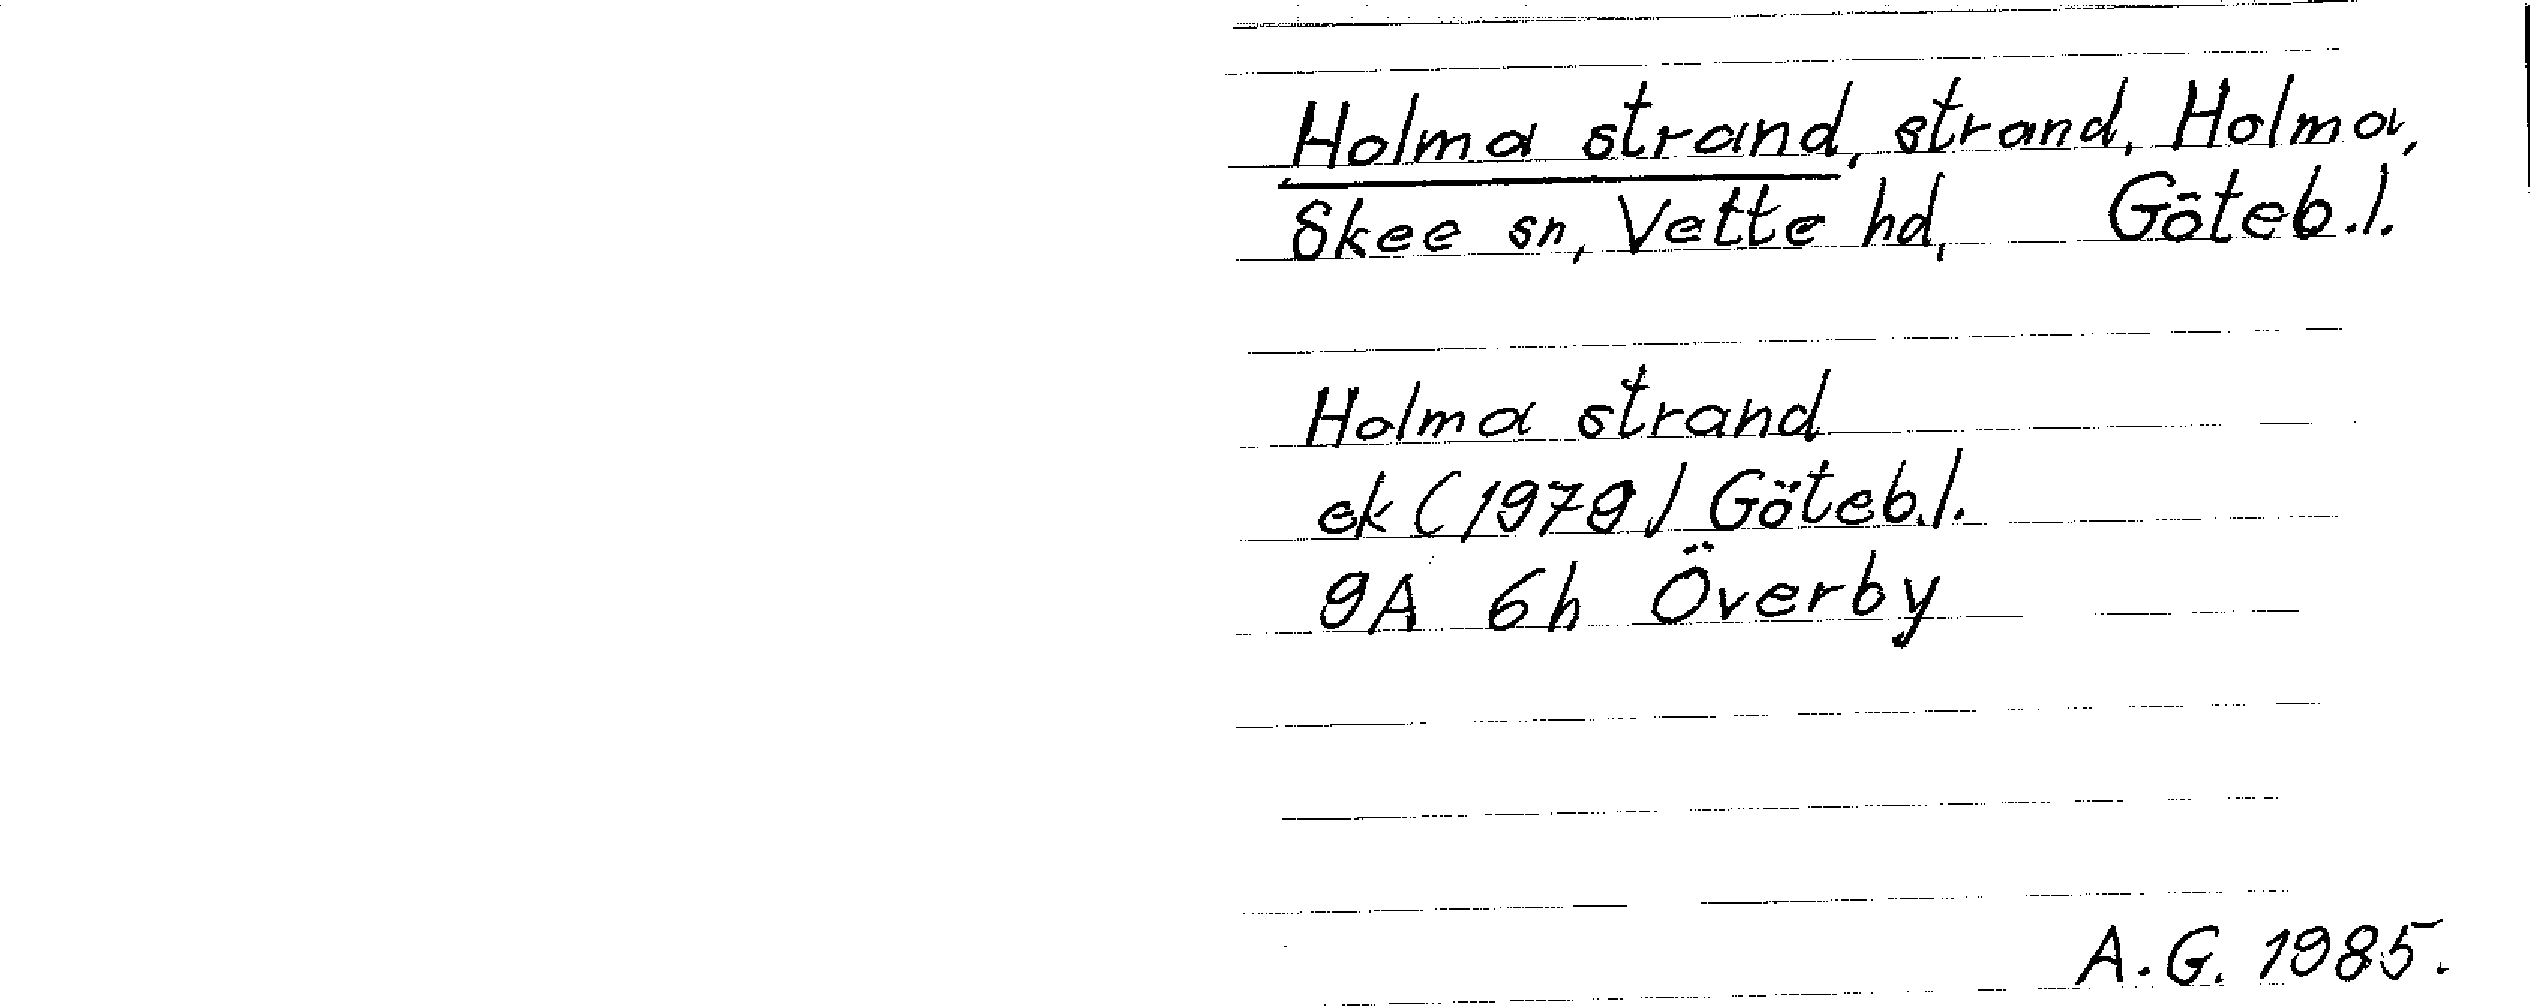 Holma strand, strand, Holma,
Skee sn, Vette hd, Göteb.l.
Holma strand
ek (1979) Göteb.l.
9A 6h Överby
A.G. 1985.